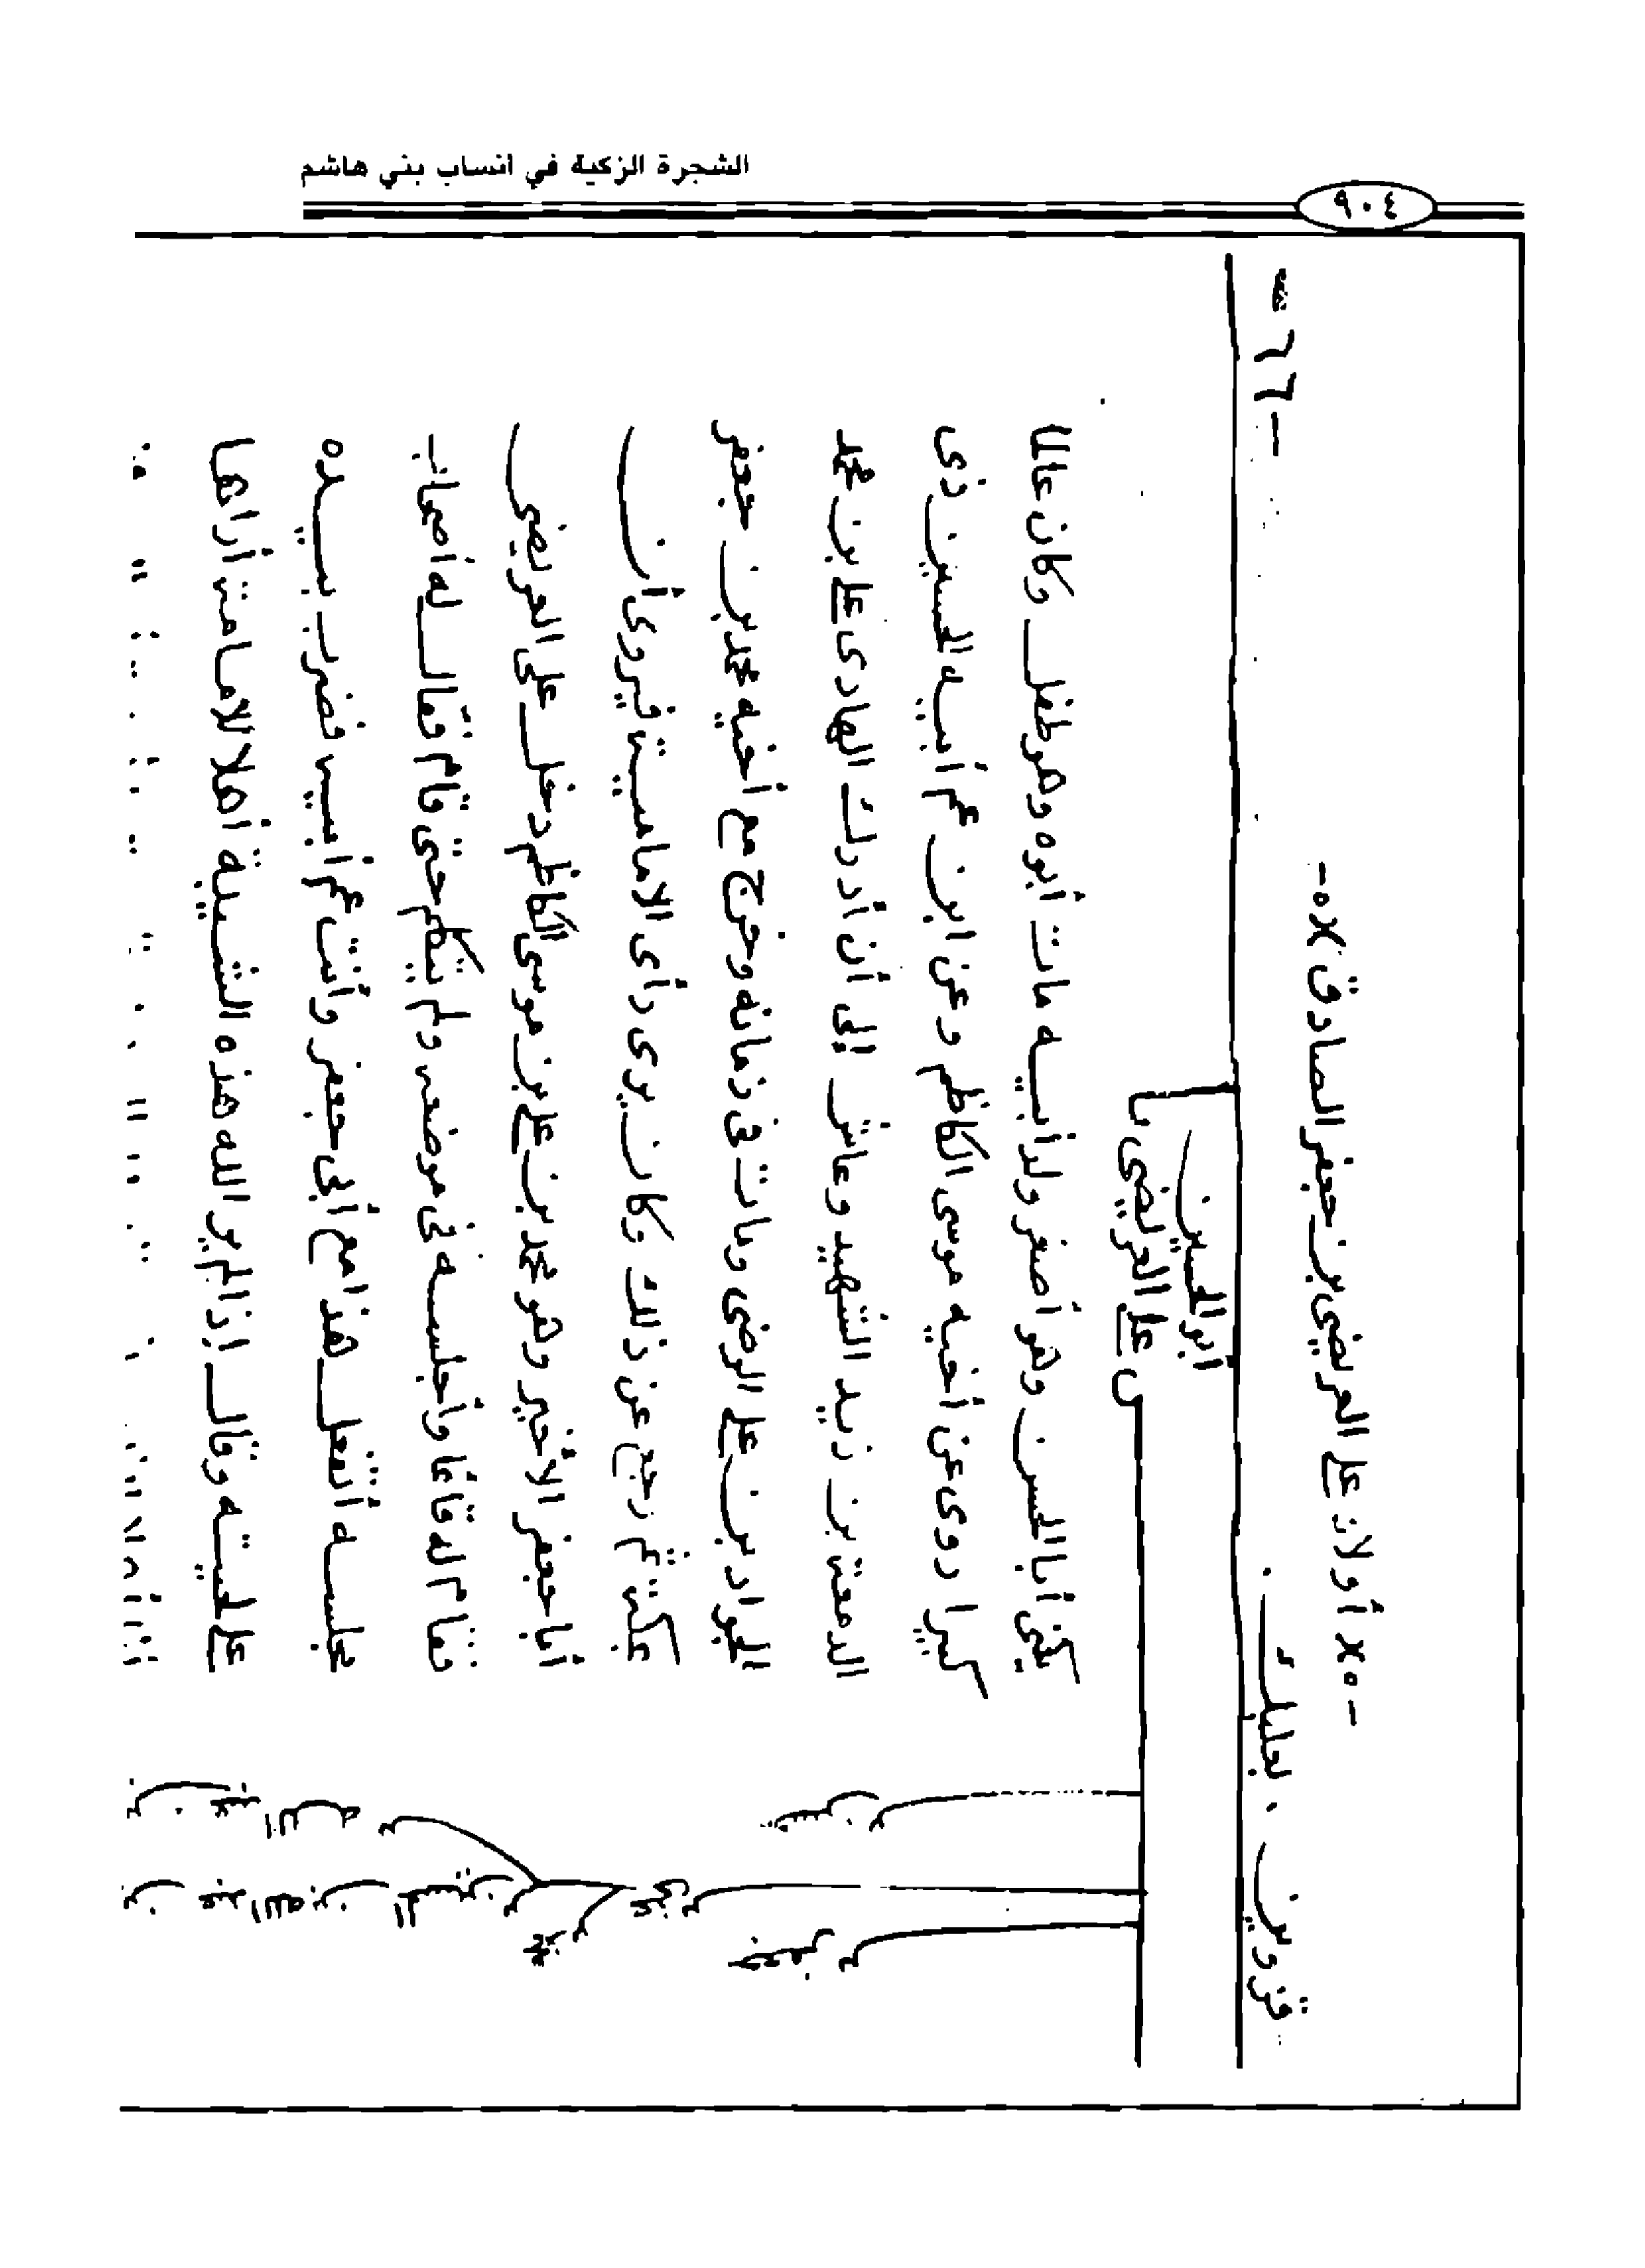 الشجرة الزكية في أنساب بني هاشم
٩٠٤
- ٦٦ -
-o× أولاد علي العريضي بن جعفر الصادق ×o-
قزوين . بعلبك .
أبو الحسين
ن علي العريضي بـ
يكنى أبا الحسن وهو أصغر ولد أبيه مات أبوه وهو طفل وكان عالما
كبيرا روى عن أخيه موسى الكاظم وعن ابن عم أبيه الحسين ذى
الدمعة بن زيد الشهيد وعاش إلى أن أدرك الهادى علي بن محمد
الجواد بن علي الرضى ومات فى زمانه وخرج مع أخيه محمد بن جعفر
بمكة ثم رجع عن ذلك وكان يرى رأى الامامية فيروى أن
أبا جعفر الأخير وهو محمد بن علي بن موسى الكاظم دخل على العريضى
فقام له قائما وأجلسه فى موضعه ولم يتكلم حتى قام فقال له أصحاب
مجلسه أتفعل هذا مع أبى جعفر وأنت عم أبيه فضرب بيده
على لحيته وقال إذا لم ير الله هذه الشيبة أهلا للامامة أراها
بن حسن
بن جعفر
بن عيسى
بن محمد
بن الحسين بن عبد الله بن
بن عبد الله بن علي بن